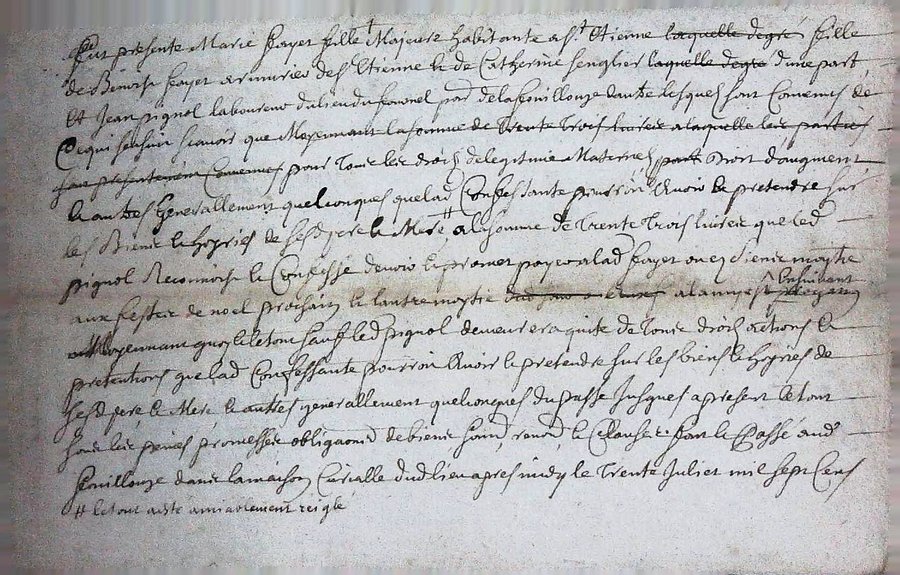 Fut presente Marie fayet fille Majeure habitante a st Etienne laquelle degré fille
de Benoist fayet armurier de st Etienne & de Catherine senglier laquelle degre d'une part
Et Jean pignol laboureur du lieu du par de lafouillouze dautre lesquels sont Convenus de
Ce qui sensuit scavoir que Moyennant la somme de Trente Trois livres a laquelle les parties
sont presentement Convenues pour Tous les droits de legitime Maternel part droit daugment
& autres Generallement quelconques que lad Confessante pourroit Avoir & pretendre sur
les Biens & hoyries de sesd pere & Mere # a la somme de Trente Trois livres que led
pignol Reconnoist & Confesse devoir & promet payer a lad fayet moytie
aux festes de noel prochain & lautre moytie a lannee Ensuivant
Moyennant quoy & le tout sauf led pignol demeurera quite de Tous droits actions &
pretentions que lad Confessante pourroit Avoir & pretendre sur les biens & hoyries de
sesd pere & Mere & autres generallement quelconques du passe Jusques a present & tout
sous les peines promesses obligaons de biens soum renon & Clauses fait & Passe aud
fouillouze dans la maison Curialle dud lieu apres midy le Trente Juliet mil sept Cens
# & tout acte amiablement reigle